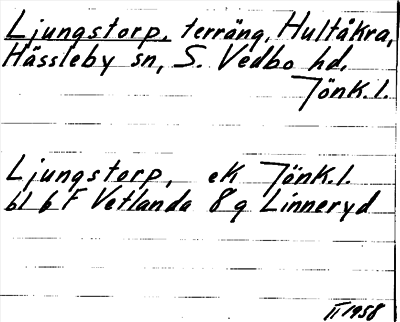 Ljungstorp, terräng, Hultåkra,
Hässleby sn, S. Vedbo hd.
Jönk. l.
Ljungstorp, ek Jönk. l.
bl 6 F Vetlanda 8 g Linneryd
II 1958